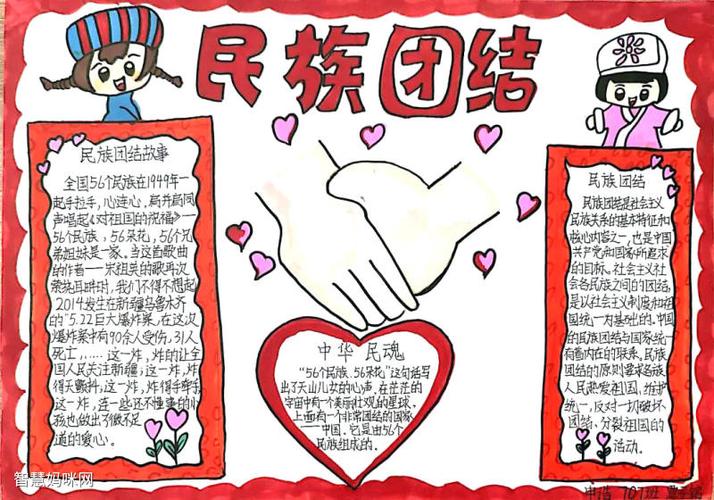 民族团结
民族团结故事
全国56个民族在1949年一
起手拉手，心连心，高声
声唱起《对祖国的祝福》—
56个民族，56朵花，56个兄
弟姐妹是一家。当这首歌曲
的作者——宋祖英的歌再次
萦绕耳畔时，我们不得不想起
2014发生在新疆乌鲁木齐
的“5.22巨大爆炸案，在这次
爆炸案中有90余人受伤，31人
死亡……这一炸，炸的让全
国人民关注新疆，这一炸，炸
得天颤抖，这一炸，炸得手牵手，
这一炸，连一些还不懂事的小
孩也做出了微不足
道的爱心。
中华民魂
“56个民族，56朵花”这句话写
出了天山儿女的心声，在茫茫的
宇宙中有一个美丽壮观的星球，
上面有一个非常团结的国家
——中国。它是由56个
民族组成的。
民族团结
民族团结是社会主义
民族关系的基本特征和
核心内容之一，也是中国
共产党和国家所追求
的目标。社会主义社
会各民族之间的团结，
是以社会主义制度和祖
国统一为基础的。中国
的民族团结与国家统一
有着内在的联系。民族
团结的原则要求各族
人民热爱祖国，维护
统一，反对一切破坏
团结、分裂祖国的
活动。
707班
智慧妈咪网